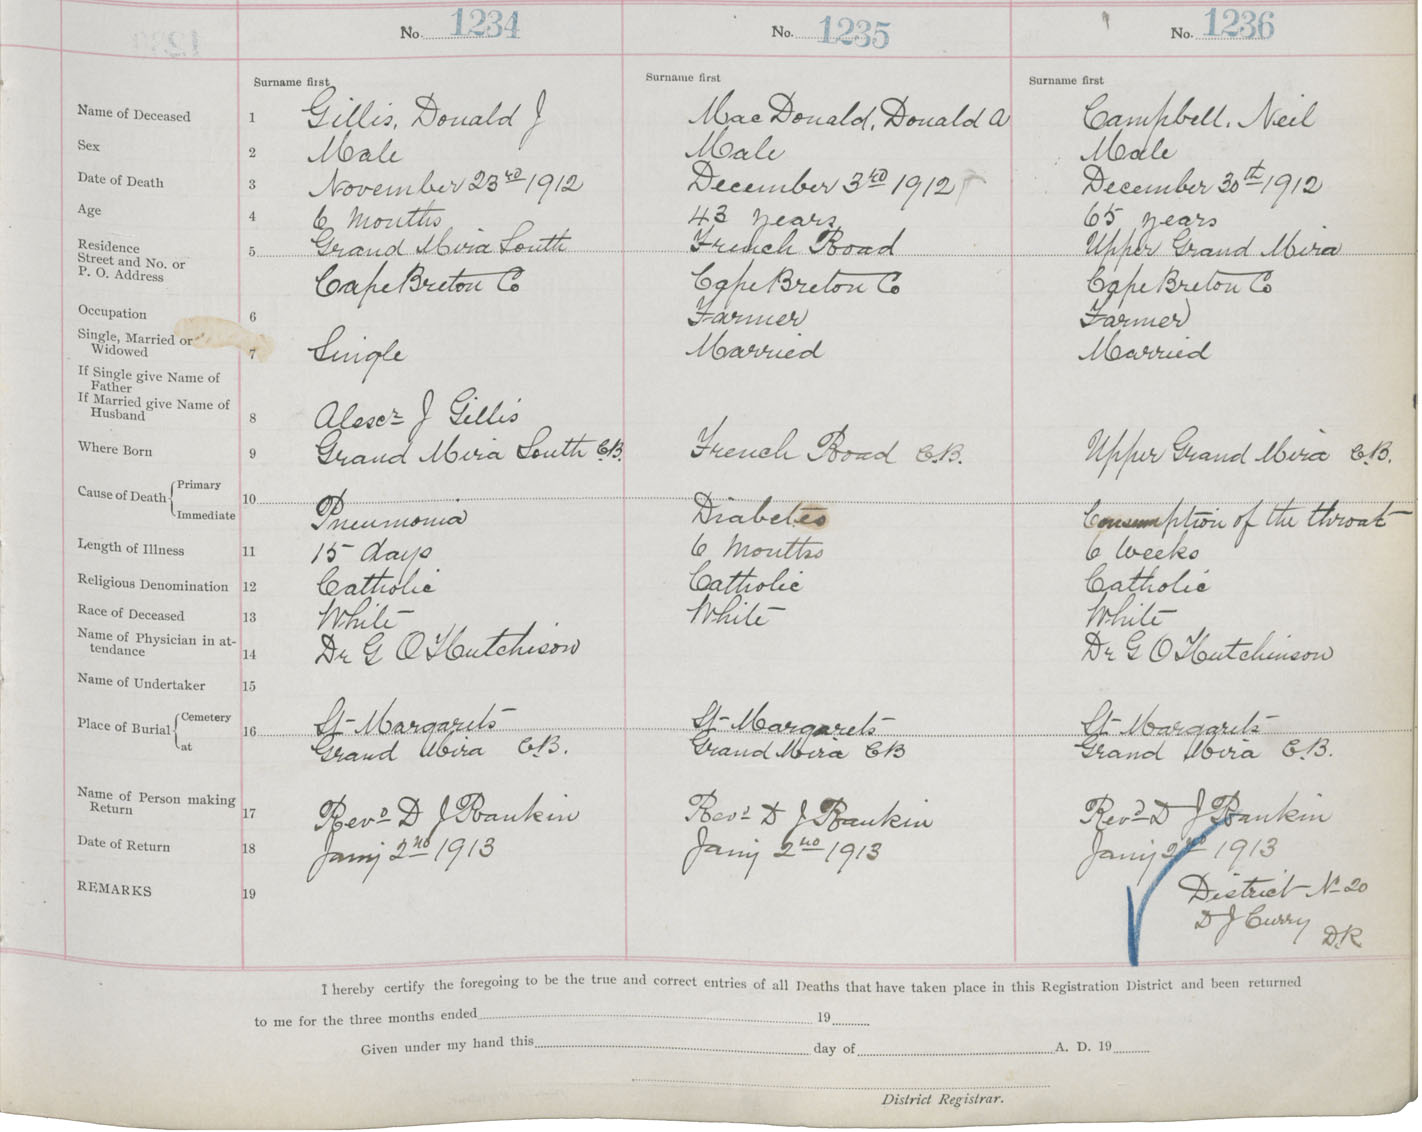 No. 1234 No. 1235 No. 1236
Surname first Surname first Surname first
Name of Deceased 1 Gillis, Donald J MacDonald, Donald A Campbell, Neil
Sex 2 Male Male Male
Date of Death 3 November 23rd 1912 December 3rd 1912 December 30th 1912
Age 4 6 Months 43 years 65 years
Residence 5 Grand Mira South French Road Upper Grand Mira
Street and No. or
P. O. Address Cape Breton Co Cape Breton Co Cape Breton Co
Occupation 6 Farmer Farmer
Single, Married or
Widowed 7 Single Married Married
If Single give Name of
Father
If Married give Name of
Husband 8 Alexr J Gillis
Where Born 9 Grand Mira South C.B. French Road C.B. Upper Grand Mira C.B.
Cause of Death { Primary 10
Immediate Pneumonia Diabetes Consumption of the throat
Length of Illness 11 15 days 6 Months 6 Weeks
Religious Denomination 12 Catholic Catholic Catholic
Race of Deceased 13 White White White
Name of Physician in at-
tendance 14 Dr G O Hutchison Dr G O Hutchinson
Name of Undertaker 15
Place of Burial { Cemetery 16 St Margarets St Margarets St Margarets
at Grand Mira C.B. Grand Mira CB Grand Mira C.B.
Name of Person making
Return 17 Revd D J Rankin Revd D J Rankin Revd D J Rankin
Date of Return 18 Jany 2nd 1913 Jany 2nd 1913 Jany 2nd 1913
REMARKS 19 District No 20
D J Curry
D.R
I hereby certify the foregoing to be the true and correct entries of all Deaths that have taken place in this Registration District and been returned
to me for the three months ended 19
Given under my hand this day of A. D. 19
District Registrar.